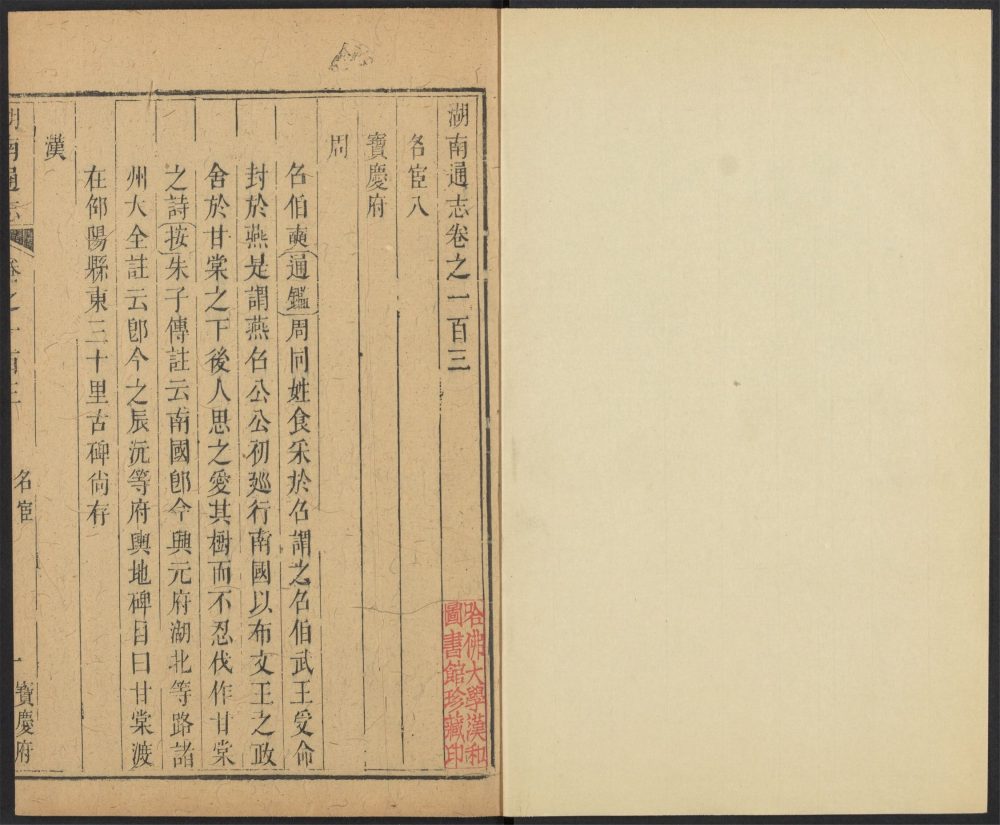 湖南通志卷之一百三
名宦八
寶慶府
周
召伯奭通鑑周同姓食采於召謂之召伯武王受命
封於燕是謂燕召公公初廵行南國以布文王之政
舍於甘棠之下後人思之愛其樹而不忍伐作甘棠
之詩按朱子傳註云南國卽今興元府湖北等路諸
州大全註云卽今之辰沅等府輿地碑目曰甘棠渡
在邵陽縣東三十里古碑尙存
漢
湖南通志 卷之一百三 名宦 一 寶慶府
哈佛大學漢和
圖書館珍藏印